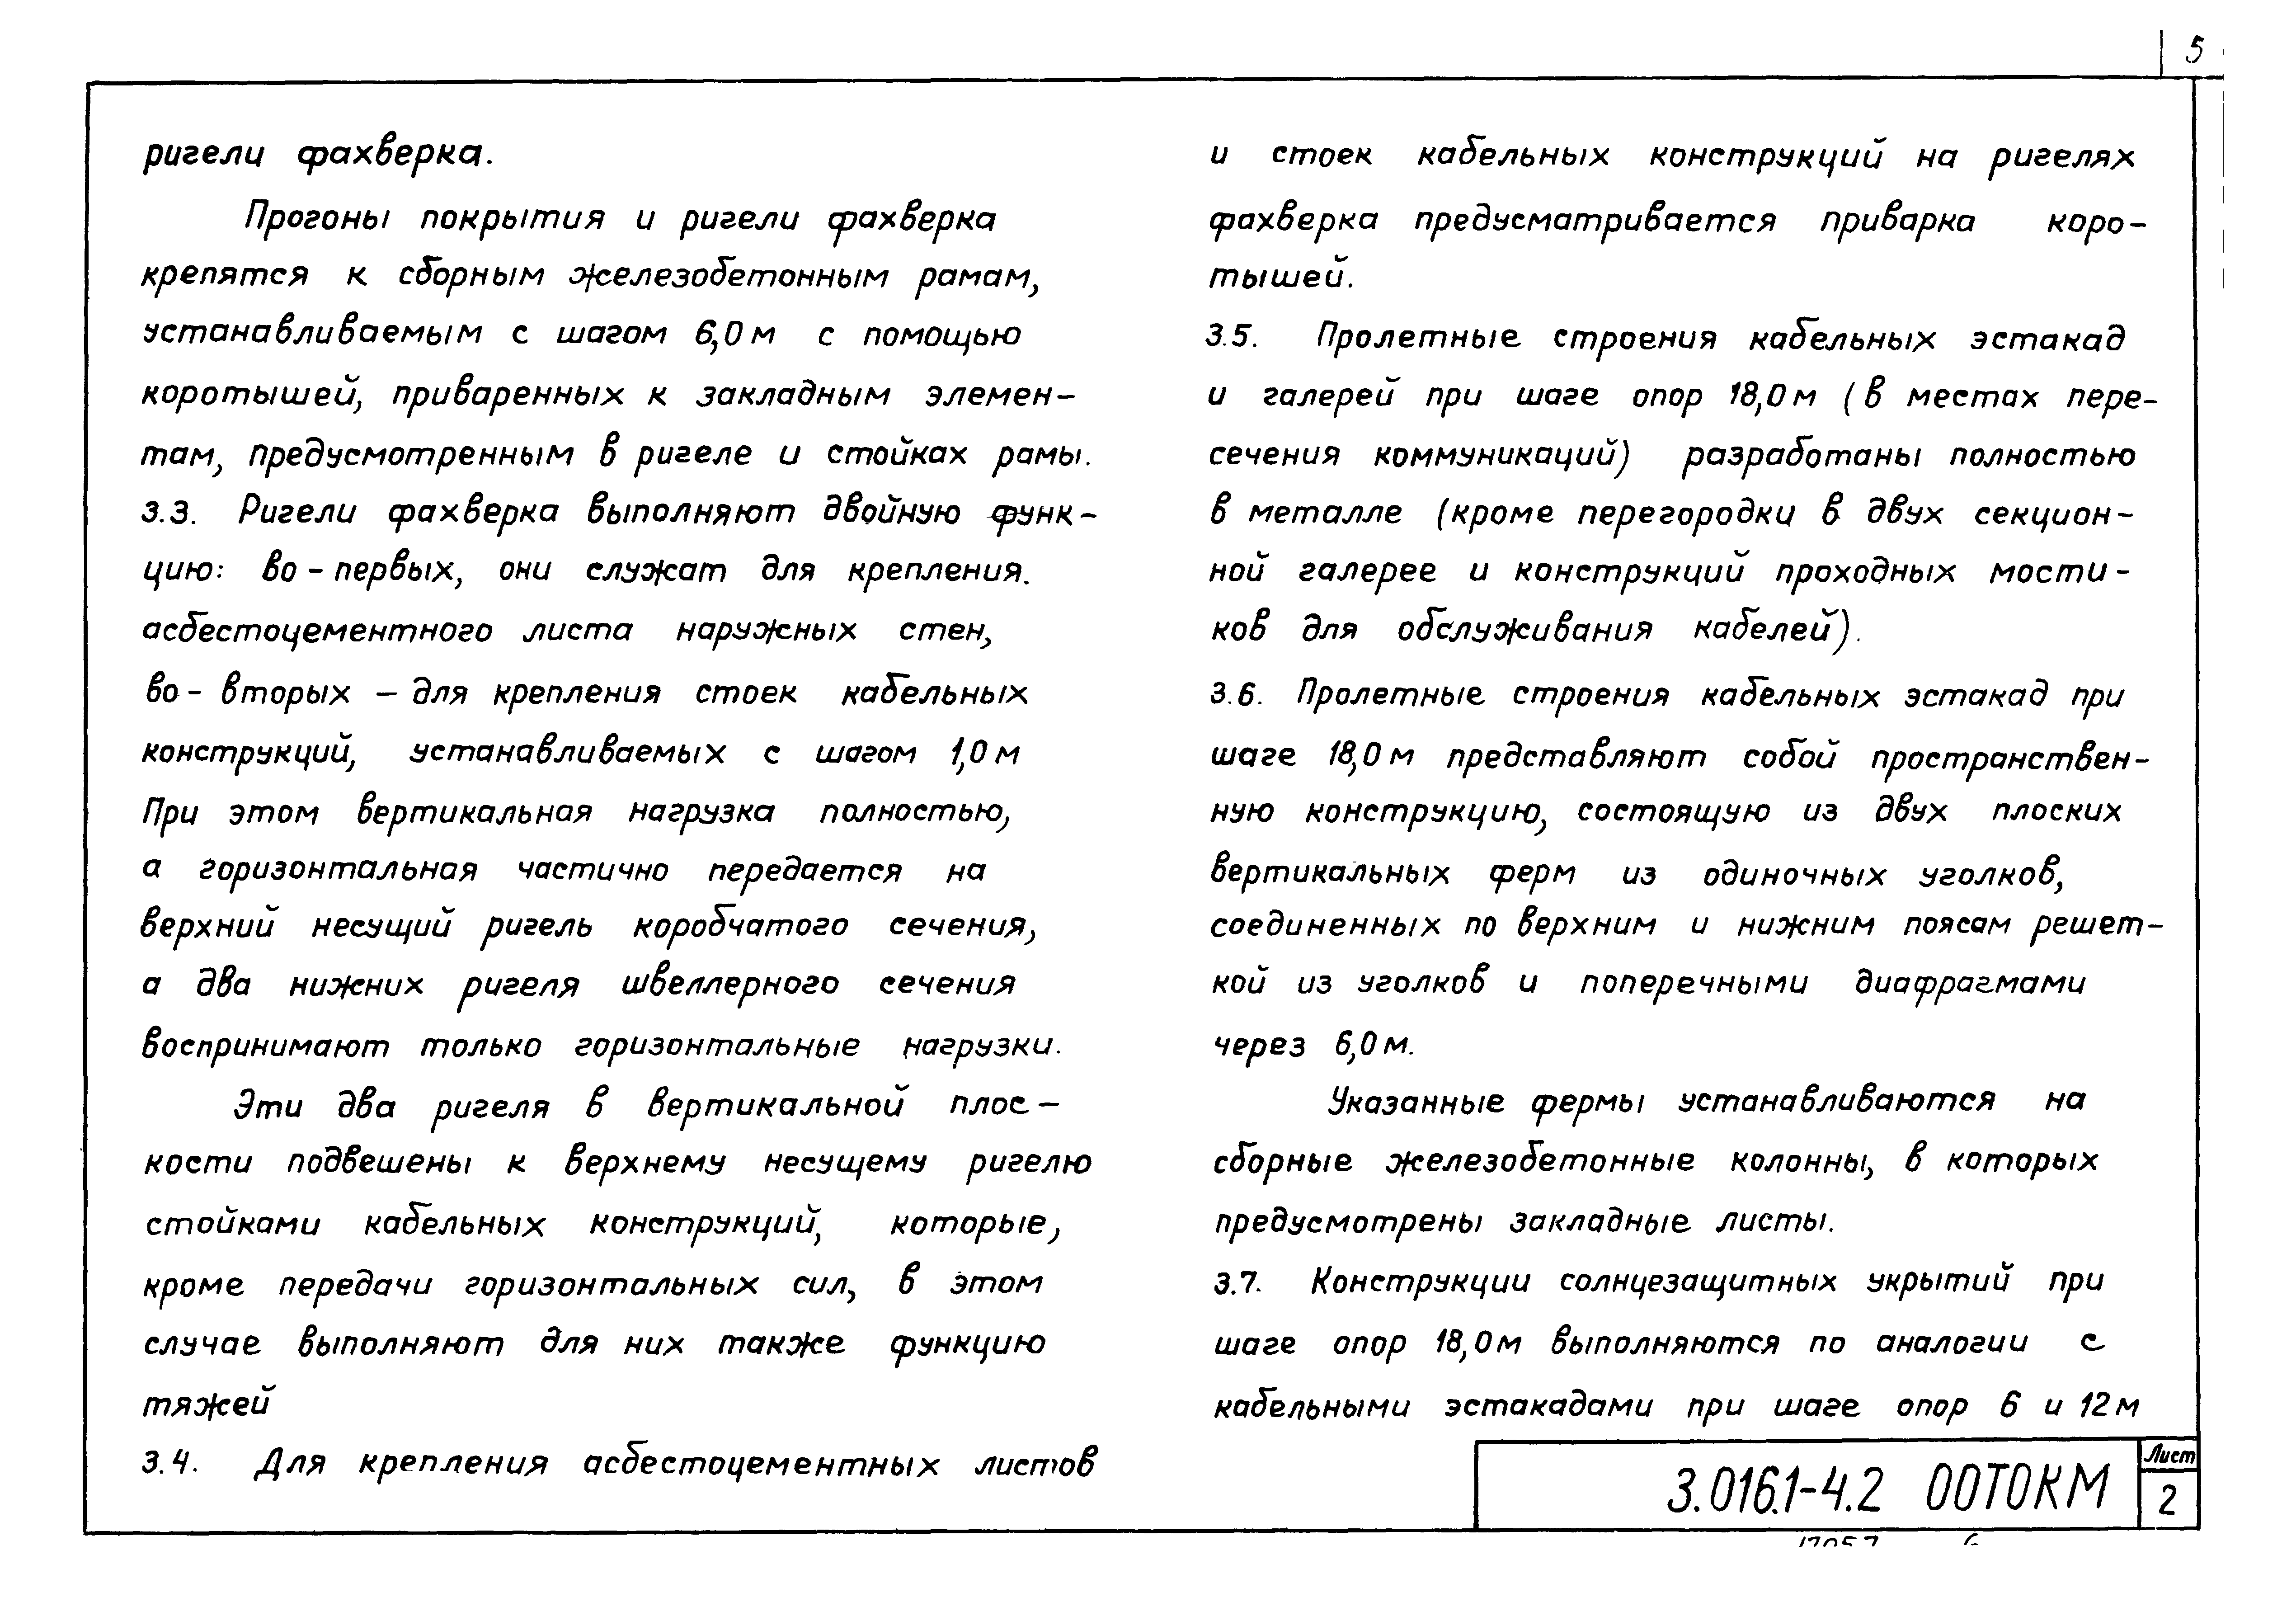 5
ригели фахверка.
Прогоны покрытия и ригели фахверка
крепятся к сборным железобетонным рамам,
устанавливаемым с шагом 6,0 м с помощью
коротышей, приваренных к закладным элемен-
там, предусмотренным в ригеле и стойках рамы.
3.3. Ригели фахверка выполняют двойную функ-
цию: во-первых, они служат для крепления.
асбестоцементного листа наружных стен,
во-вторых – для крепления стоек кабельных
конструкций, устанавливаемых с шагом 1,0 м
При этом вертикальная нагрузка полностью,
а горизонтальная частично передается на
верхний несущий ригель коробчатого сечения,
а два нижних ригеля швеллерного сечения
воспринимают только горизонтальные нагрузки.
Эти два ригеля в вертикальной плос-
кости подвешены к верхнему несущему ригелю
стойками кабельных конструкций, которые,
кроме передачи горизонтальных сил, в этом
случае выполняют для них также функцию
тяжей
3.4. Для крепления асбестоцементных листов
и стоек кабельных конструкций на ригелях
фахверка предусматривается приварка коро-
тышей.
3.5. Пролетные строения кабельных эстакад
и галерей при шаге опор 18,0 м (в местах пере-
сечения коммуникаций) разработаны полностью
в металле (кроме перегородки в двух секцион-
ной галерее и конструкций проходных мости-
ков для обслуживания кабелей).
3.6. Пролетные строения кабельных эстакад при
шаге 18,0 м представляют собой пространствен-
ную конструкцию, состоящую из двух плоских
вертикальных ферм из одиночных уголков,
соединенных по верхним и нижним поясам решет-
кой из уголков и поперечными диафрагмами
через 6,0 м.
Указанные фермы устанавливаются на
сборные железобетонные колонны, в которых
предусмотрены закладные листы.
3.7. Конструкции солнцезащитных укрытий при
шаге опор 18,0 м выполняются по аналогии с
кабельными эстакадами при шаге опор 6 и 12 м
3.016.1-4.2 00ТОКМ
Лист
2